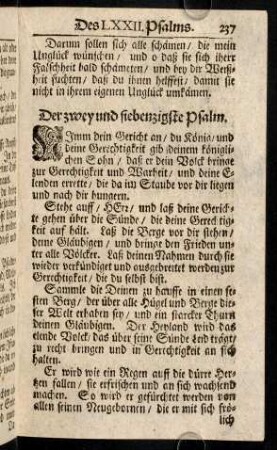 Des LXXII. Psalms. 237
Darum sollen sich alle schämen/ die mein
Unglück wünschen/ und o daß sie sich ihrer
Falschheit bald schämeten/ und bey dir Weiß-
heit suchten/ daß du ihnen helffest/ damit sie
nicht in ihrem eigenen Unglück umkämen.
Der zwey und siebenzigste Psalm.
NImm dein Gericht an/ du König/ und
deine Gerechtigkeit gib deinem königlichen
Sohn/ daß er dein Volck bringe
zur Gerechtigkeit und Warheit/ und deine E-
lenden errette/ die da im Staube vor dir liegen
und nach dir hungern.
Stehe auff/ HErr/ und laß deine Gerich-
te gehen über die Sünde/ die deine Gerechtig-
keit auf hält. Laß die Berge vor dir stehen/
deine Gläubigen/ und bringe den Frieden un-
ter alle Völcker. Laß deinen Nahmen durch sie
wieder verkündiget und ausgebreitet werden zur
Gerechtigkeit/ die du selbst bist.
Sammle die Deinen zu hauffe in einen fe-
sten Berg/ der über alle Hügel und Berge die-
ser Welt erhaben sey/ und ein starcker Thurn
deinen Gläubigen. Der Heyland wird das
elende Volck/ das über seine Sünde Leid trägt/
zu recht bringen und in Gerechtigkeit an sich
halten.
Er wird wie ein Regen auff die dürre Her-
tzen fallen/ sie erfrischen und an sich wachsend
machen. So wird er gefürchtet werden von
allen seinen Neugebornen/ die er mit sich frö-
lich